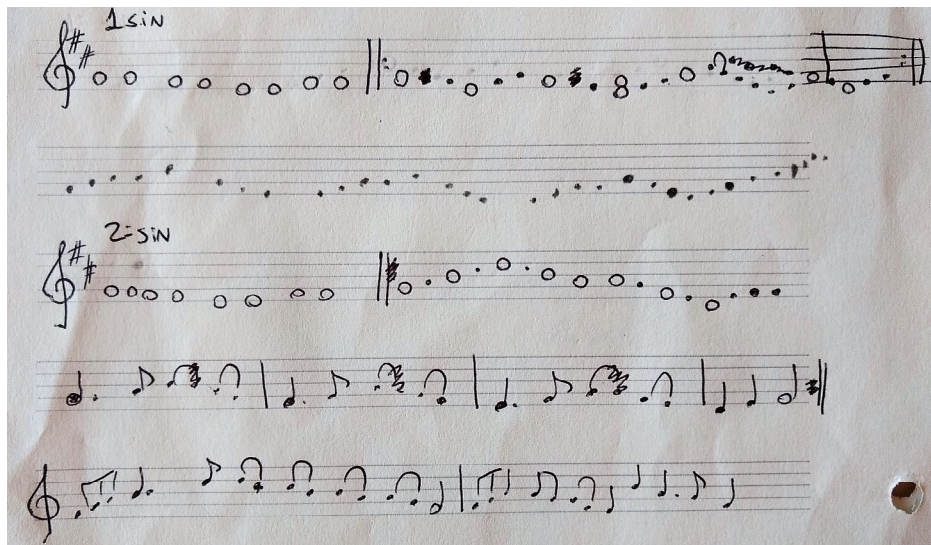 1 sin
2= sin